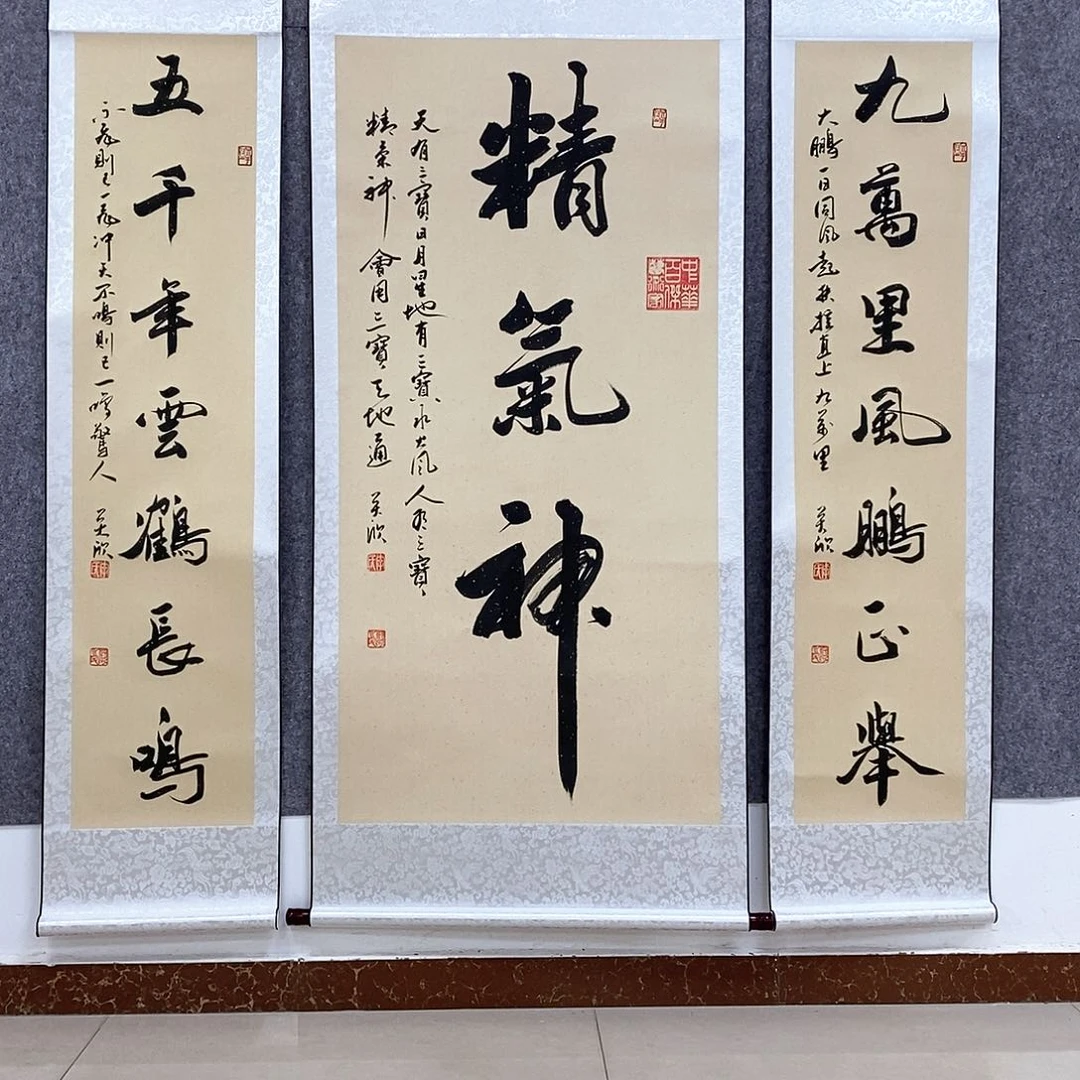 九萬里風鵬正舉
大鵬一日同风起扶摇直上九萬里
精氣神
中華
百傑
藝術家
天有三寶日月星地有三寶水火风人有三寶
精氣神會用三寶天地通
五千年雲鶴長鳴
不飛則已一飛冲天不鳴則已一鳴驚人